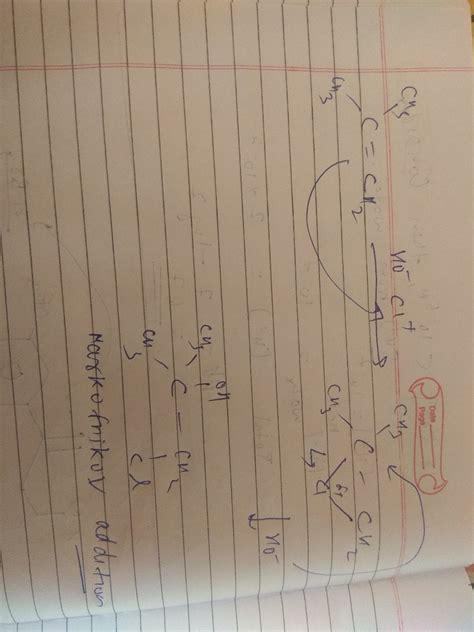 CH3
CH3
C = CH2
HO⁻ Cl⁺
CH3
CH3
C - CH2
Cl
HO⁻
CH3 OH
C - CH2
CH3 Cl
Markofnikov addition
Date
Page